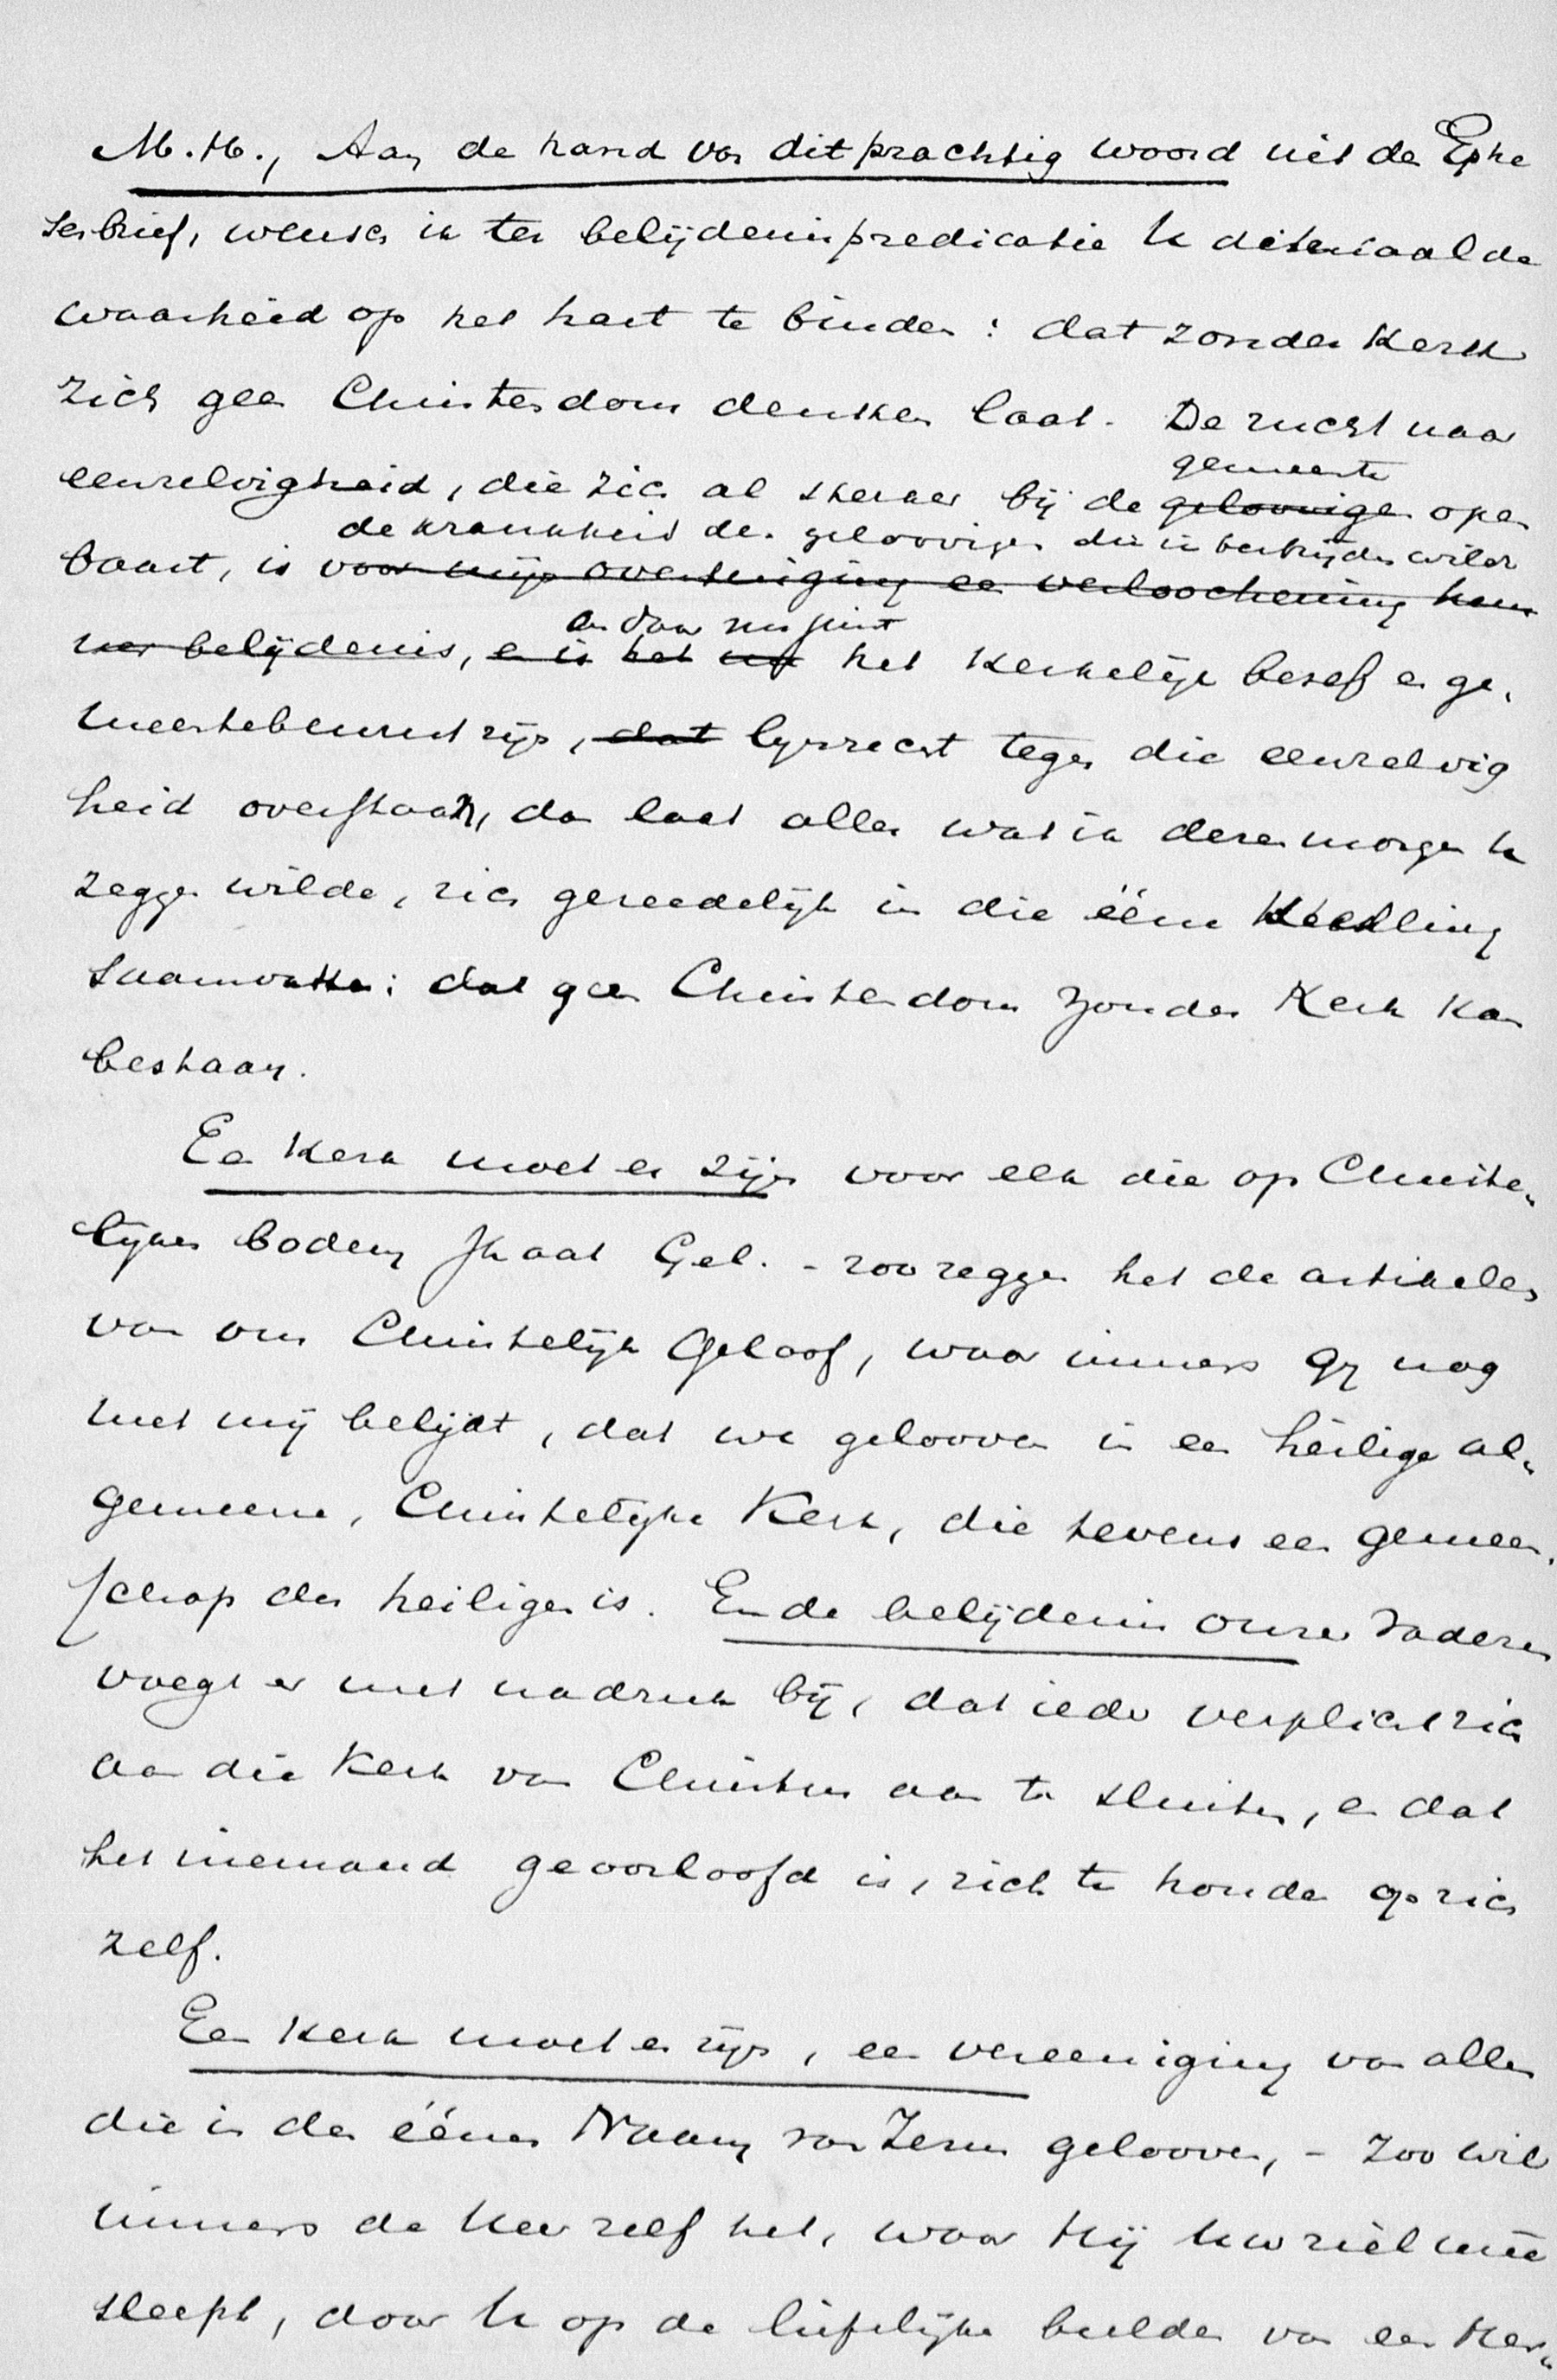 M.H., Aan de hand van dit prachtig woord uit den Ephe
serbrief, wensch ik ter belijdenispredicatie U ditmaal de
waarheid op het hart te binden: dat zonder Kerk
zich geen Christendom denken laat. De zucht naar
gemeente
eenzelvigheid, die zich al sterker bij de geloovigen open
de krankheid der geloovigen die ik bestrijden wilde
baart, is voor mijn overtuiging een verloochening hun
en daar nu juist
ner belijdenis, en is het het Kerkelijk besef en ge„
meentebewustzijn, dat lijnrecht tegen die eenzelvig
heid overstaan, dan laat alles wat ik dezen morgen U
zeggen wilde, zich gereedelijk in die ééne stelling
saamvatten: dat geen Christendom zonder Kerk kan
bestaan.
Een Kerk moet er zijn voor elk die op Christe„
lijken bodem staat Gel. - zoo zeggen het de artikelen
van ons Christelijk Geloof, waar immers gij nog
met mij belijdt, dat we gelooven in een heilige al„
gemeene, Christelijke Kerk, die tevens een gemeen„
schap der heiligen is. En de belijdenis onzer Vaderen
voegt er met nadruk bij, dat ieder verplicht zich
aan die Kerk van Christus aan te sluiten, en dat
het niemand geoorloofd is, zich te houden op zich
zelf.
Een Kerk moet er zijn, een vereeniging van allen
die in den éénen Naam van Jezus gelooven, - Zoo wil
immers de Heer zelf het, waar Hij Uw ziel meê
sleept, door U op de liefelijke beelden van een Her„